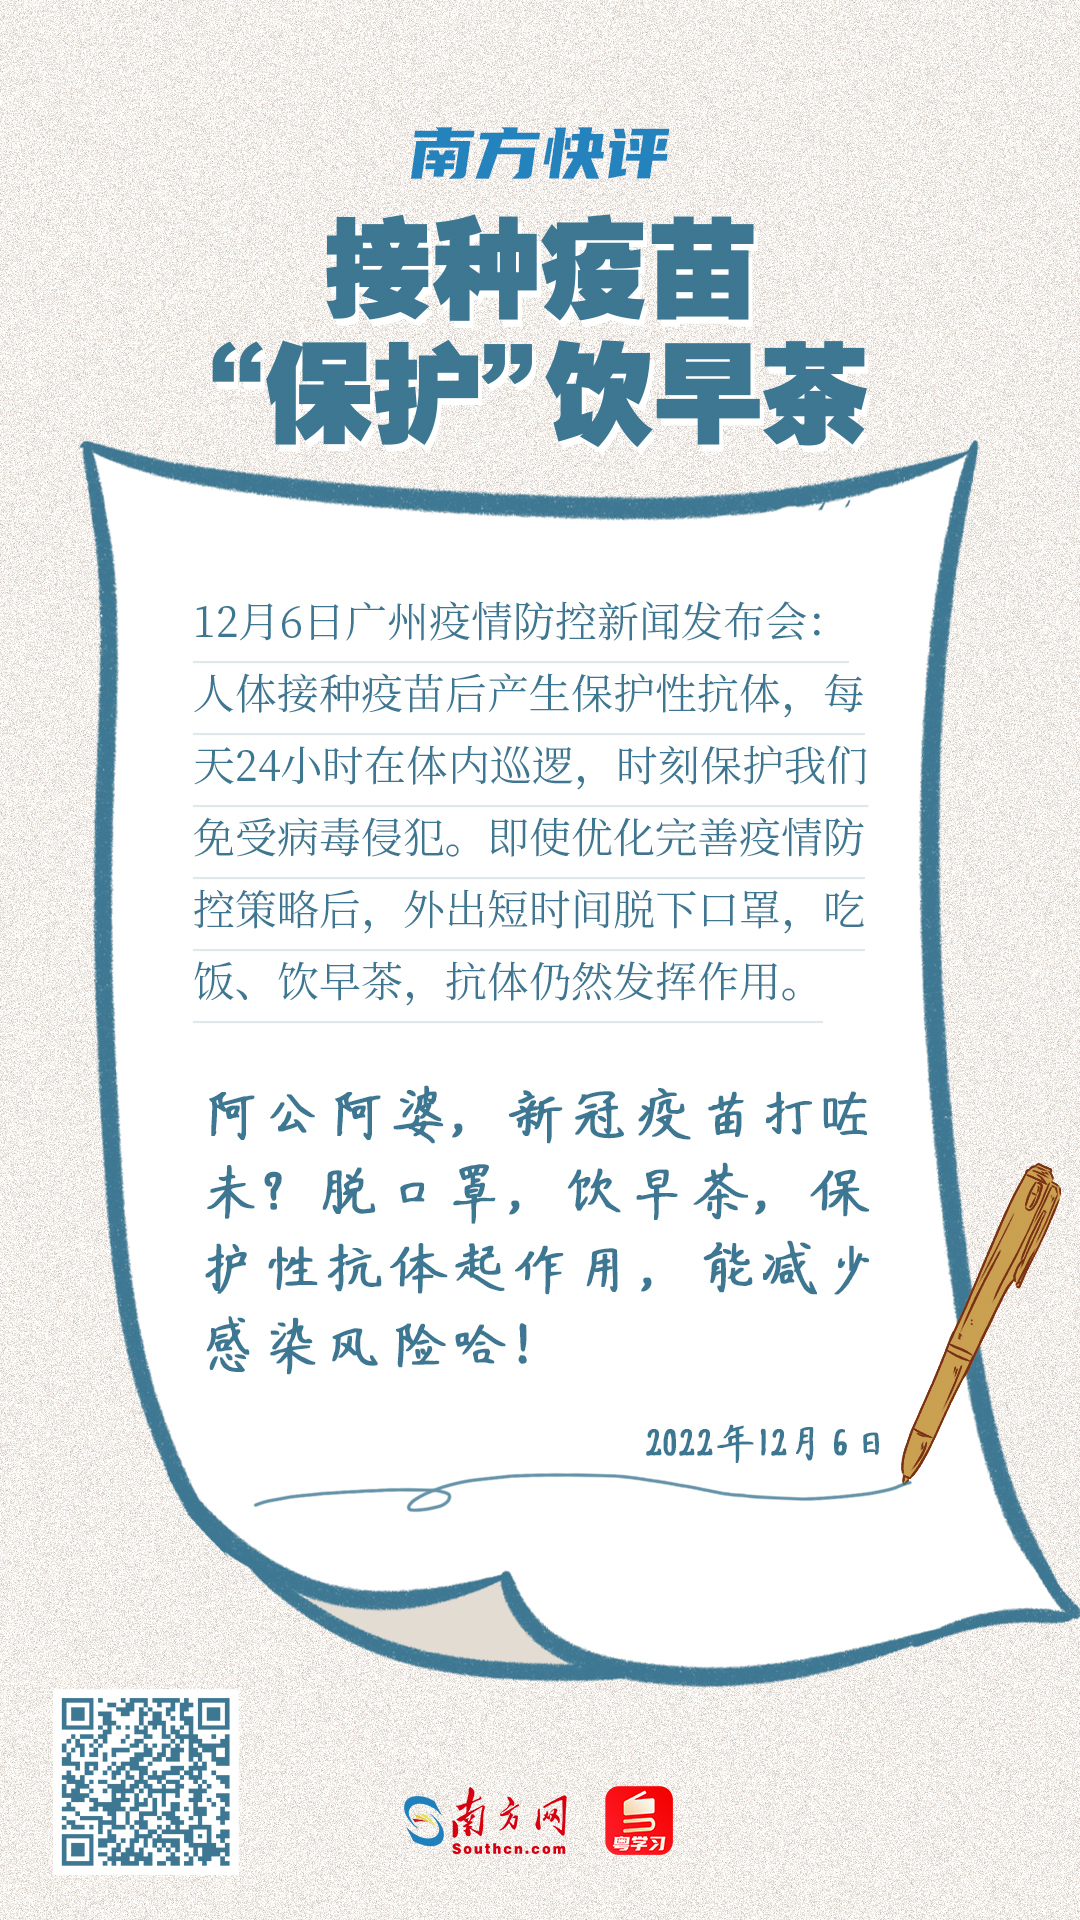 南方快评
接种疫苗
“保护”饮早茶
12月6日广州疫情防控新闻发布会：
人体接种疫苗后产生保护性抗体，每
天24小时在体内巡逻，时刻保护我们
免受病毒侵犯。即使优化完善疫情防
控策略后，外出短时间脱下口罩，吃
饭、饮早茶，抗体仍然发挥作用。
阿公阿婆，新冠疫苗打咗
未？脱口罩，饮早茶，保
护性抗体起作用，能减少
感染风险哈！
2022年12月6日
南方网
Southcn.com
粤学习